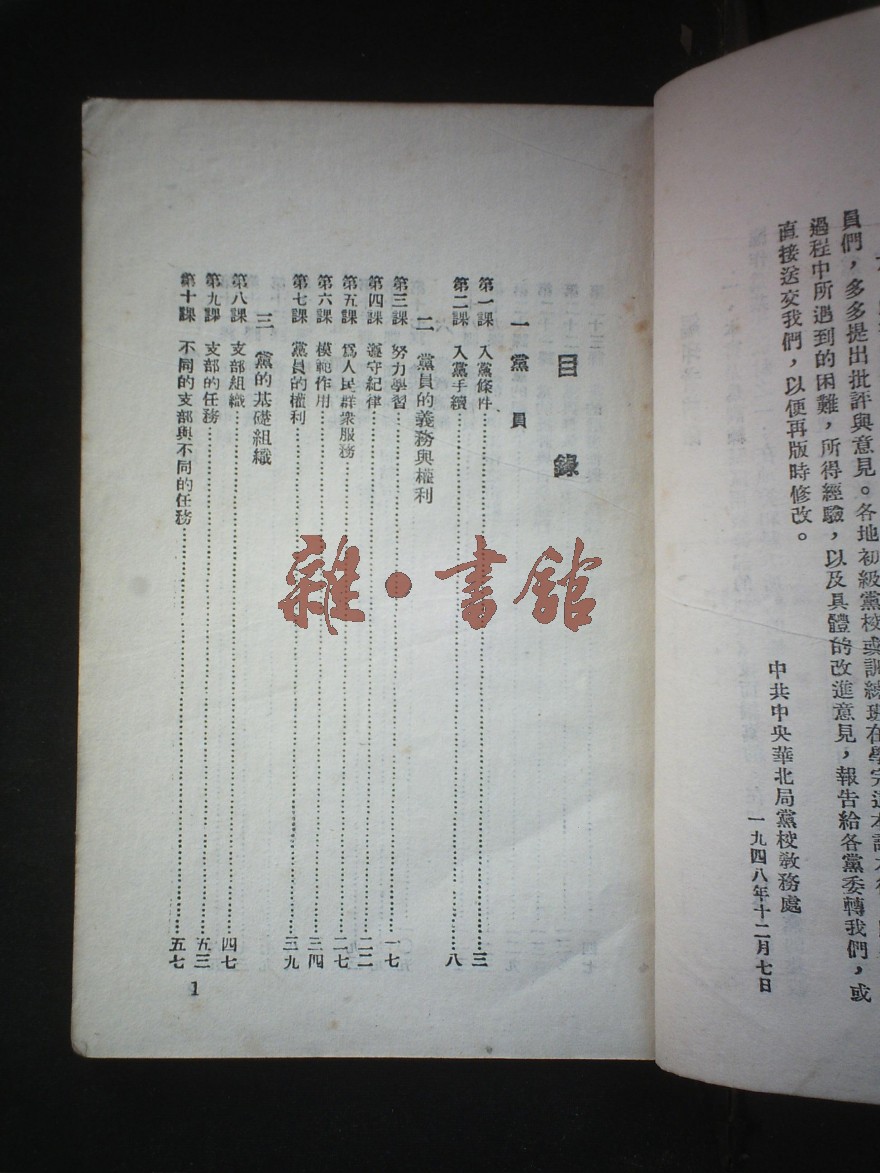 員們，多多提出批評與意見。各地初級黨校或訓練班在學完這本課本後，
過程中所遇到的困難，所得經驗，以及具體的改進意見，報告給各黨委轉我們，或
直接送交我們，以便再版時修改。
中共中央華北局黨校教務處
一九四八年十二月七日
目錄
一 黨員
第一課 入黨條件……三
第二課 入黨手續……八
二 黨員的義務與權利
第三課 努力學習……一七
第四課 遵守紀律……二二
第五課 爲人民群衆服務……二七
第六課 模範作用……三四
第七課 黨員的權利……三九
三 黨的基礎組織
第八課 支部組織……四七
第九課 支部的任務……五三
第十課 不同的支部與不同的任務……五七
1
雜·書館